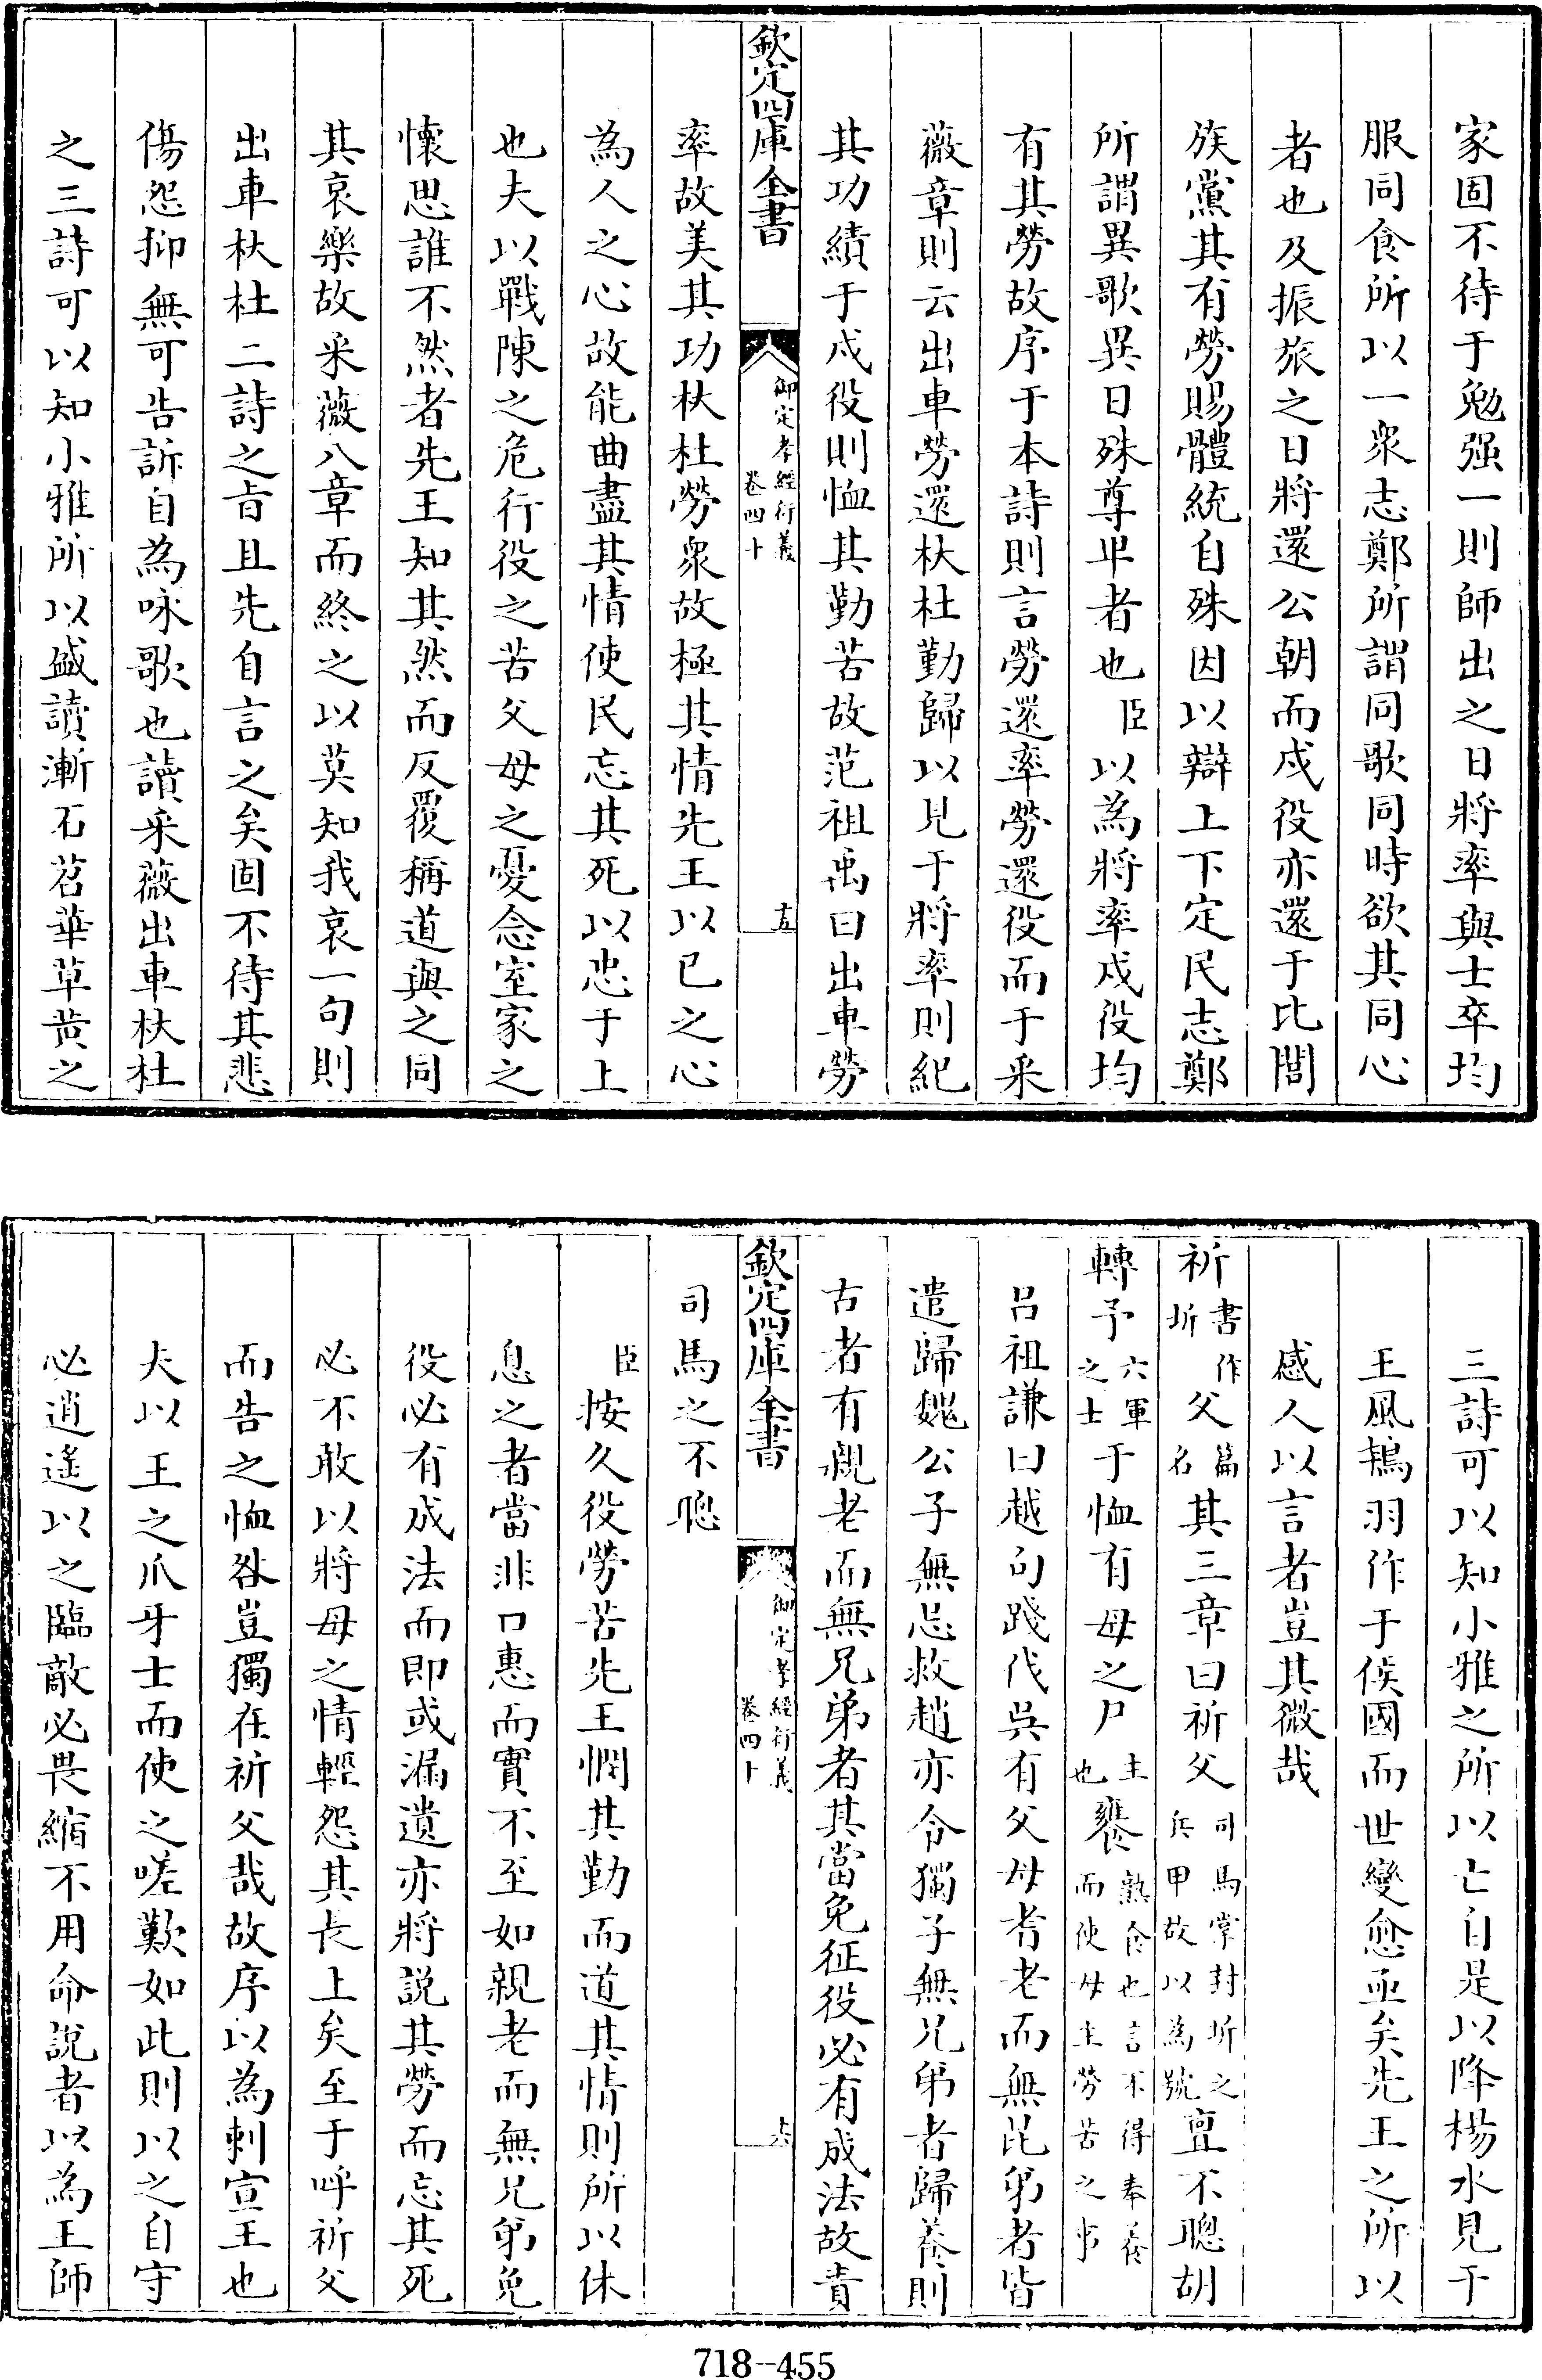 家固不待于勉强一則師出之日將率與士卒均
服同食所以一衆志鄭所謂同歌同時欲其同心
者也及振旅之日將還公朝而戍役亦還于比閭
族黨其有勞賜體統自殊因以辯上下定民志鄭
所謂異歌異日殊尊卑者也臣以為將率戍役均
有其勞故序于本詩則言勞還率勞還役而于采
薇章則云出車勞還杕杜勤歸以見于將率則紀
其功績于戍役則恤其勤苦故范祖禹曰出車勞
欽定四庫全書
御定孝經衍義
卷四十
十五
率故美其功杕杜勞衆故極其情先王以已之心
為人之心故能曲盡其情使民忘其死以忠于上
也夫以戰陳之危行役之苦父母之憂念室家之
懷思誰不然者先王知其然而反覆稱道與之同
其哀樂故采薇八章而終之以莫知我哀一句則
出車杕杜二詩之旨且先自言之矣固不待其悲
傷怨抑無可告訴自為咏歌也讀采薇出車杕杜
之三詩可以知小雅所以盛讀漸石苕華草黄之
三詩可以知小雅之所以亡自是以降楊水見于
王風鴇羽作于侯國而世變愈亟矣先王之所以
感人以言者豈其微哉
祈書作圻父篇名其三章曰祈父司馬掌封圻之兵甲故以為號亶不聰胡
轉予六軍之士于恤有母之尸主也饔熟食也言不得奉養而使母主勞苦之事
呂祖謙曰越句踐伐吳有父母耆老而無昆弟者皆
遣歸魏公子無忌救趙亦令獨子無兄弟者歸養則
古者有親老而無兄弟者其當免征役必有成法故責
欽定四庫全書
御定孝經衍義
卷四十
十六
司馬之不聰
臣按久役勞苦先王憫其勤而道其情則所以休
息之者當非口惠而實不至如親老而無兄弟免
役必有成法而即或漏遺亦將説其勞而忘其死
必不敢以將母之情輕怨其長上矣至于呼祈父
而告之恤咎豈獨在祈父哉故序以為刺宣王也
夫以王之爪牙士而使之嗟歎如此則以之自守
必逍遙以之臨敵必畏縮不用命説者以為王師
718--455